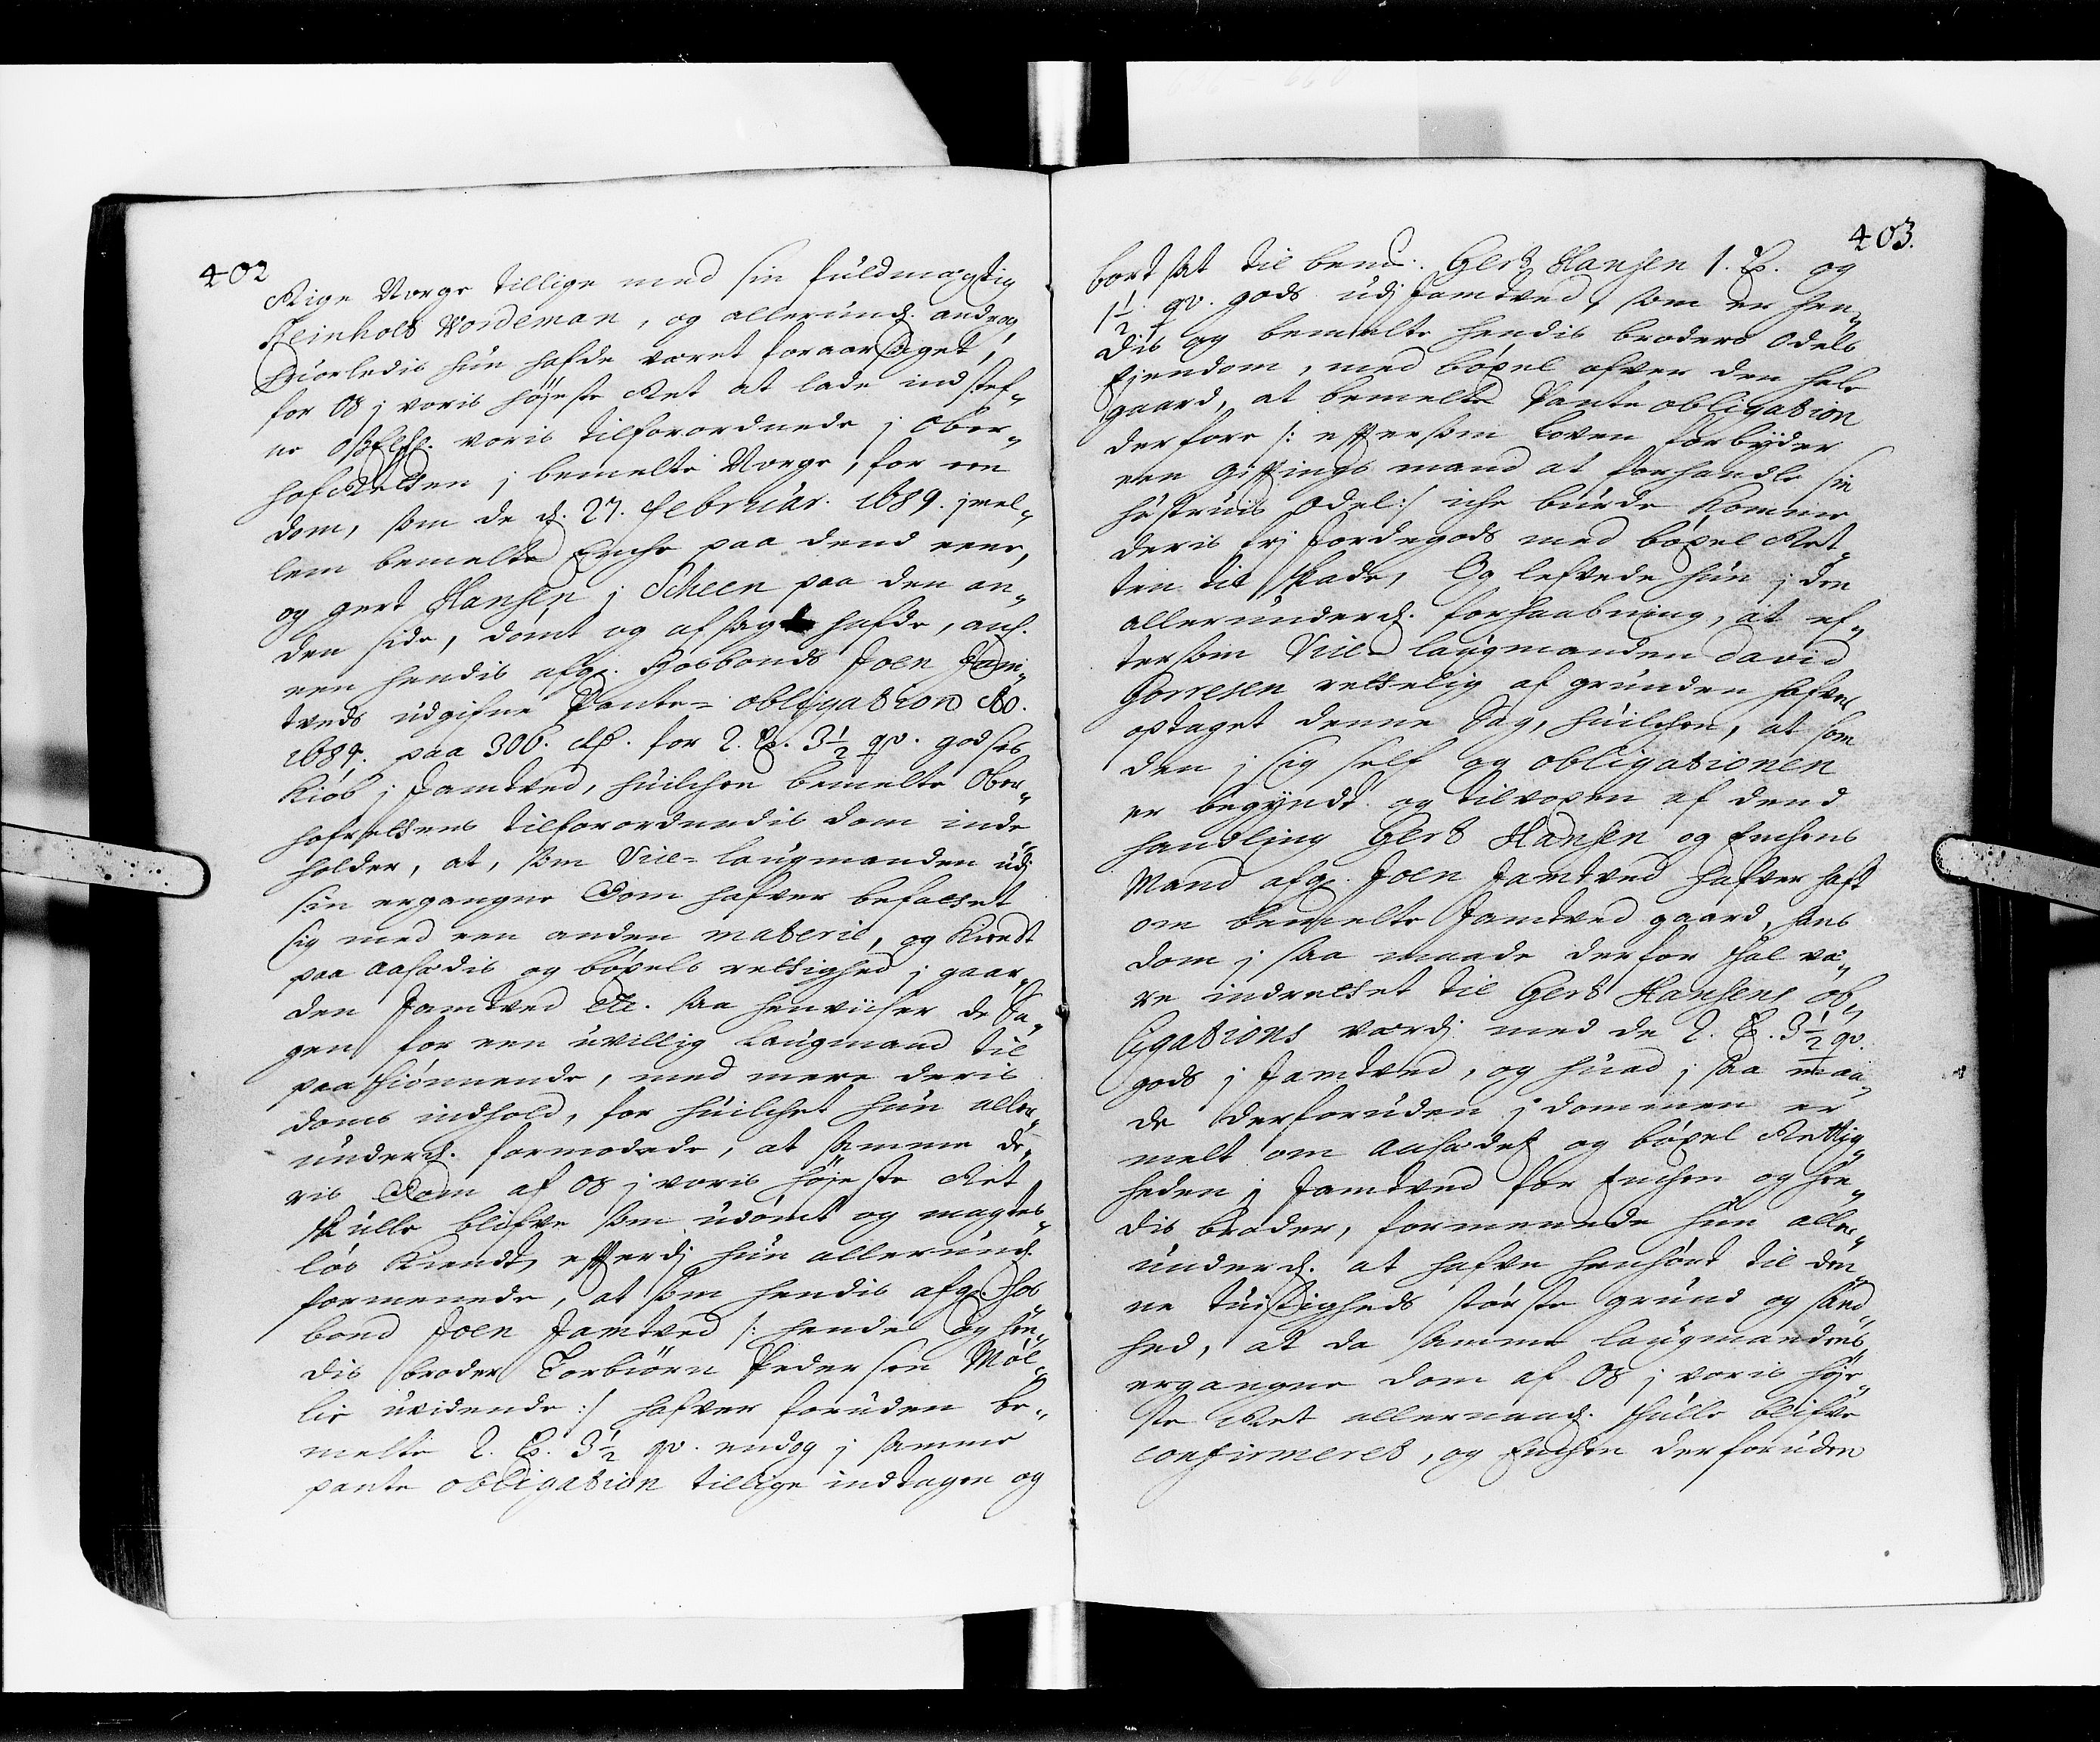 402
Rige Norge tillige med sin fuldmægtig
Reinholt Wordeman, og allerund. androg,
huorledis hun hafde været foraarsaget,
for Os j voris høyeste Ret at lade indstef„
ne Osselsk. voris tilforordnede j Ober„
hofRetten j bemelte Norge, for een
dom, som de d. 27. februar. 1689. jmel„
lem bemelte Enche paa dend eene,
og gert Hansen j Scheen paa den an„
den side, dømt og afsagt hafde, ang.
een hendis afg. Hosbonds Joen Jam„
tveds udgifne Pante= obligation Ao.
1684. paa 306. Rd. for 2. H. 3½ qv. godses
Kiøb j Jamtved, huilchen bemelte Ober„
hofrettens tilforordnedis dom inde„
holder, at, som Vice= laugmanden udj
sin ergangne Dom hafver befattet
sig med een anden materie, og Kiendt
paa aasædis og bøxels rettighed j gaar„
den Jamtved etc. saa henviiser de Sa„
gen for een uvillig Laugmand til
paaskiønnende, med mere deris
doms indhold, for huilchet hun aller„
underd. formodede, at samme de„
ris Dom af Os j voris høyeste Ret
skulle blifve som udømt og magtes„
løs Kiendt, efterdj hun allerund.
formeende, at som hendis afg. Hos„
bond Joen Jamtved /: hende og hen„
dis broder Torbiørn Pedersen Møl„
lie uvidende :/ hafver foruden be„
melte 2. H. 3½ qv. endog j samme
pante obligation tillige indtagen og
403.
bort sat til bem.te Gert Hansen 1. H. og
1½ qv. gods udj Jamtved, som er hen„
dis og bemelte hendis broders Odels
Ejendom, med bøxel ofver den hele
gaard, at bemelte Pante obligation
derfore /: eftersom Loven forbyder
een Giftings mand at forhandle sin
hustruis Odel :/ iche burde Komme
deris frj Jordegods med bøxel Ret„
ten til skade, Og lefvede hun j den
allerunderd. forhaabning, at ef„
tersom Vice laugmanden David
Gorresen rettelig af grunden hafver
optaget denne Sag, huilchen, at som
den j sig self og obligationen
er begyndt og tilvoxen af dend
handling Gert Hansen og Enchens
Mand afg. Joen Jamtved hafver haft
om bemelte Jamtved gaard, hans
dom j saa maade derfor skal væ„
re indrettet til Gert Hansens ob„
ligations værdj med de 2. H. 3½ qv.
gods j Jamtved, og huad j saa maa„
de derforuden j dommen er
melt om aasædes og bøxel Rettig„
heden j Jamtved for Enchen og hen„
dis broder, formeenede hun aller„
underd. at hafve henhørt til den„
ne tuistigheds største grund og sand„
hed, at da samme laugmandens
ergangne dom af Os j voris høye„
ste Ret allernaad. skulle blifve
confirmeret, og Enchen derforuden